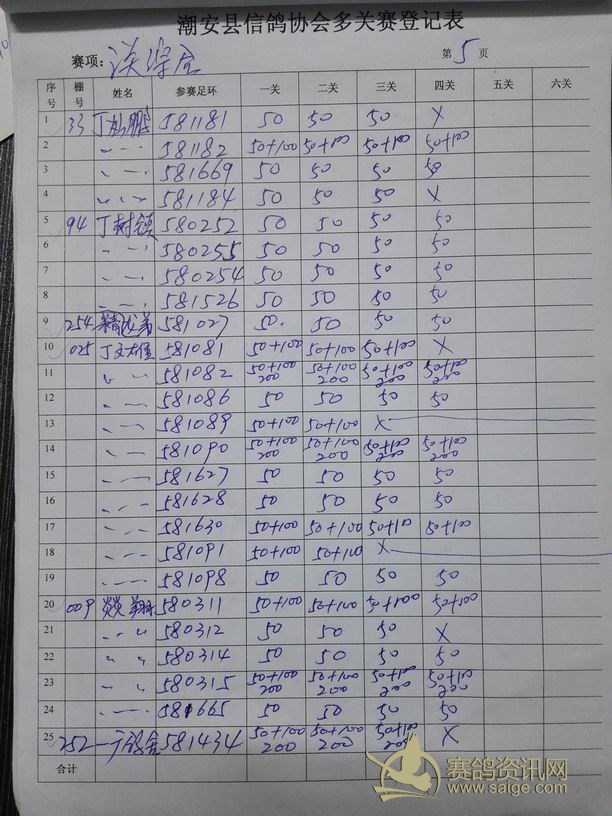 潮安县信鸽协会多关赛登记表
赛项: 第 5 页
序号 棚号 姓名 参赛足环 一关 二关 三关 四关 五关 六关
1 33 丁 鹏 581181 50 50 50 X
2 〃 581182 50+100 50+100 50+100 50+100
3 〃 581669 50 50 50 50
4 〃 581184 50 50 50 X
5 94 丁树镇 580252 50 50 50 50
6 〃 580255 50 50 50 50
7 〃 580254 50 50 50 50
8 〃 581526 50 50 50 50
9 254 581027 50 50 50 50
10 025 丁文 581081 50+100 50+100 50+100 X
11 〃 581082 50+100 200 50+100 200 50+100 200 50+100 200
12 〃 581086 50 50 50 50
13 〃 581089 50+100 50+100 X
14 〃 581090 50+100 200 50+100 200 50+100 200 50+100 200
15 〃 581627 50 50 50 50
16 〃 581628 50 50 50 50
17 〃 581630 50+100 50+100 50+100 50+100
18 〃 581091 50+100 50+100 X
19 〃 581098 50 50 50 50
20 009 翔 580311 50+100 50+100 50+100 50+100
21 〃 580312 50 50 50 X
22 〃 580314 50 50 50 50
23 〃 580315 50+100 200 50+100 200 50+100 200 50+100 200
24 〃 581665 50 50 50 50
25 252 581434 50+100 200 50+100 200 50+100 200 X
合计
赛鸽资讯网
www.saige.com